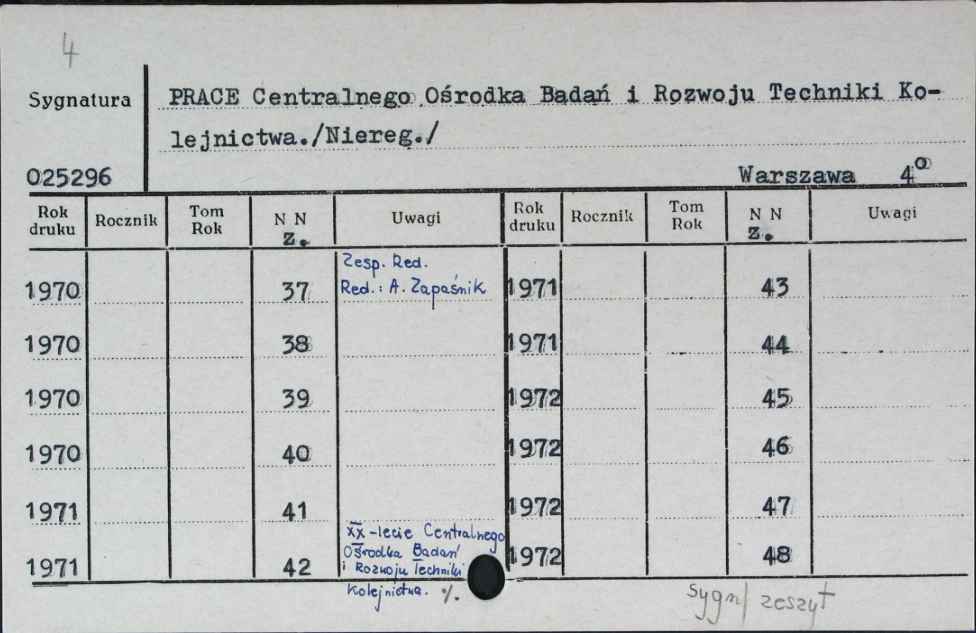 4
Sygnatura PRACE Centralnego Ośrodka Badań i Rozwoju Techniki Ko-
lejnictwa./Niereg./
025296 Warszawa 4°
Rok druku Rocznik Tom Rok N N Z. Uwagi Rok druku Rocznik Tom Rok N N Z. Uwagi
Zesp. Red.
1970 37 Red.: A. Zapaśnik 1971 43
1970 38 1971 44
1970 39 1972 45
1970 40 1972 46
1971 41 1972 47
XX-lecie Centralnego
Ośrodka Badań
1971 42 i Rozwoju Techniki 1972 48
Kolejnictwa. ·/.
sygn/ zeszyt